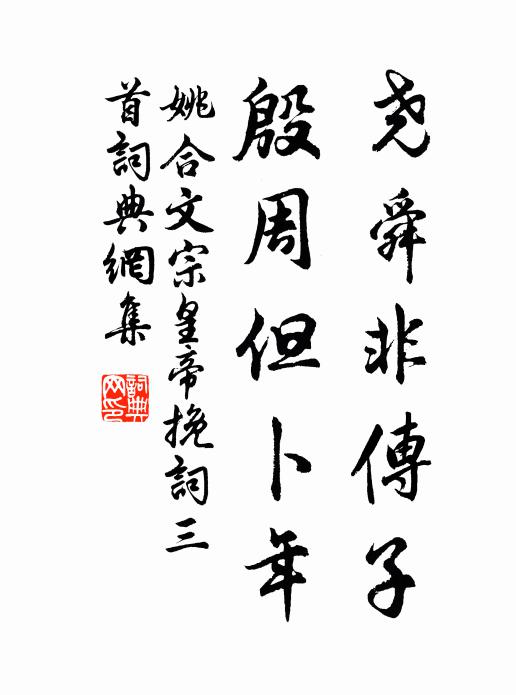 尧舜非傳子
殷周但卜年
姚合文宗皇帝挽詞三
首詞典網集
詞典
网印